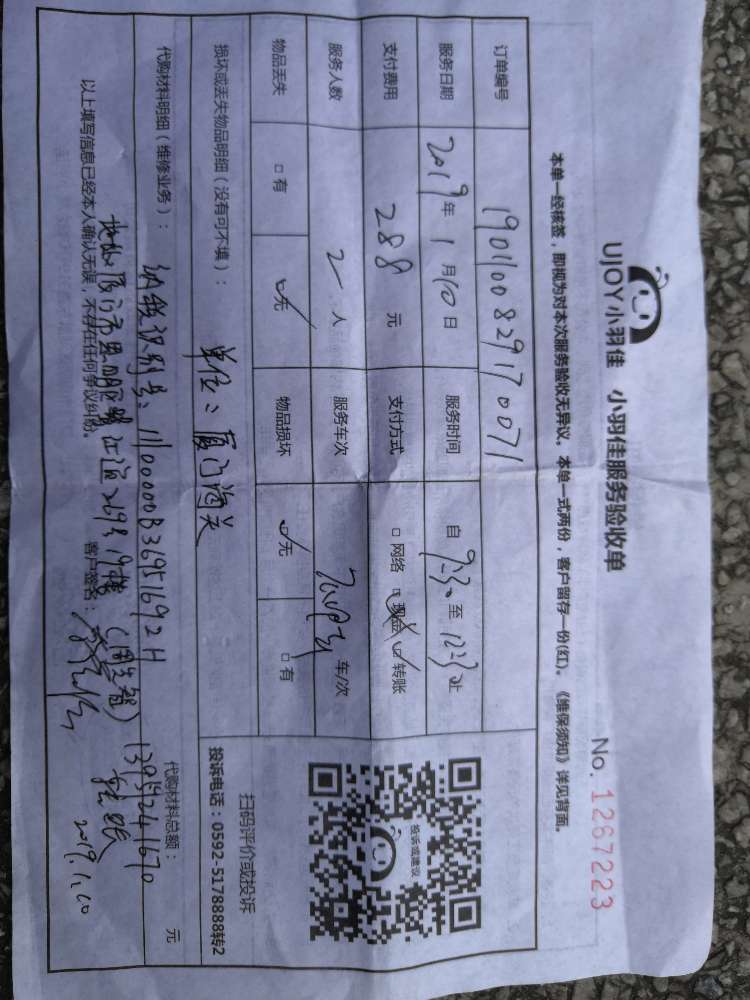 UJOY小羽佳 小羽佳服务验收单
No. 1267223
本单一经核签，即视为对本次服务验收无异议。本单一式两份，客户留存一份(红)。《维保须知》详见背面。
订单编号 1901100829170071
服务日期 2019年1月10日 服务时间 自 9:30 至 12:30 止
支付费用 288 元 支付方式 □网络 □现金 ☑转账
服务人数 2 人 服务车次 车/次
物品丢失 □有 ☑无 物品损坏 ☑无 □有
投诉或建议
扫码评价或投诉
投诉电话：0592-5178888转2
损坏或丢失物品明细（没有可不填）：
单位：厦门海关
代购材料明细（维修业务）： 代购材料总额： 元
纳税识别号：11100000B36951692H 13952241670
地址：厦门市思明区鹭江道269号19楼
以上填写信息已经本人确认无误，不存在任何争议纠纷。 客户签名：
2019.1.10